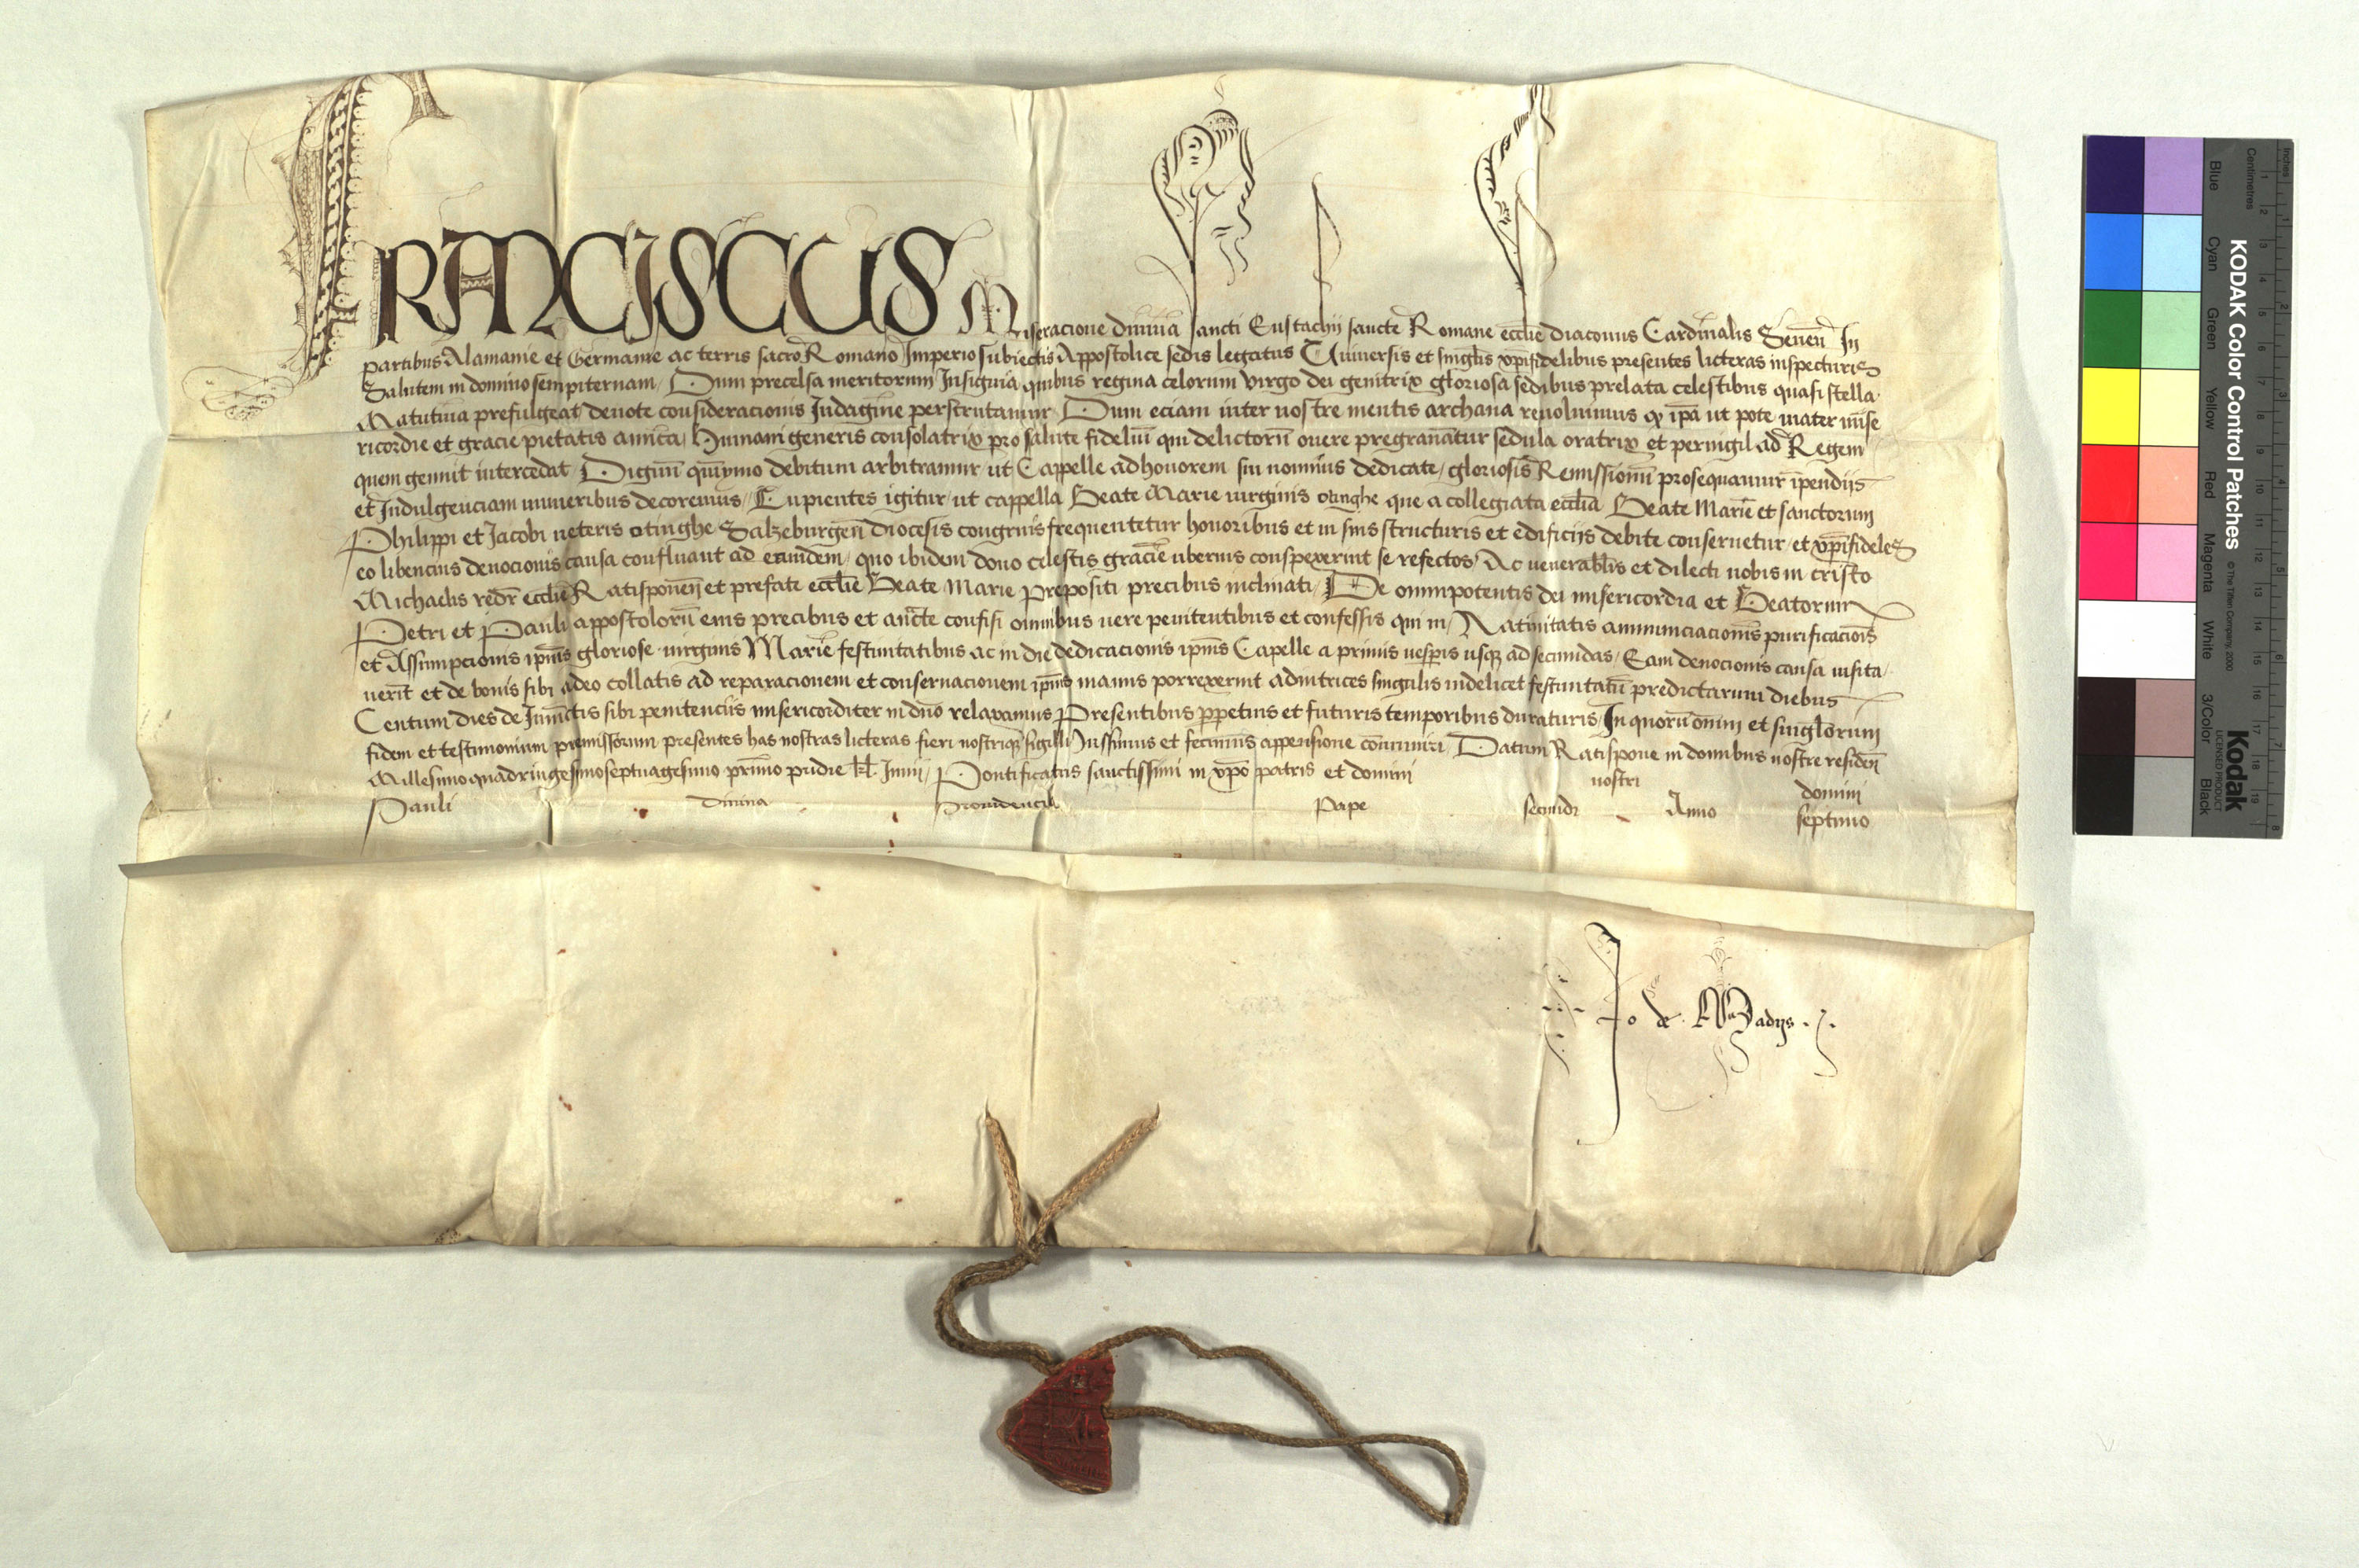 FRANCISCUS Miseracione divina sancti Eustachij sancte Romane eccl̄ie Diaconus Cardinalis Senen̄ In
partibus Alamanie et Germanie ac terris sacro Romano Imperio subiectis Appostolice sedis legatus Universis et singl̄is xp̄ifidelibus presentes licteras inspecturis
Salutem in domino sempiternam / Dum precelsa meritorum Insignia quibus regina celorum virgo dei genitrix gloriosa sedibus prelata celestibus quasi stella
Matutina prefulgeat devote consideracionis Indagine perscrutamur Dum eciam inter nostre mentis archana revolvimus ꝙ ip̄a ut pote mater mise
ricordie et gracie pietatis amica, Humani generis consolatrix pro salute fideliū qui delictorū onere pregravantur sedula oratrix et pervigil ad Regem
quem genuit intercedat Dignum quinymo debitum arbitramur ut Cappelle ad honorem sui nominis dedicate / gloriosis Remissionū prosequamur īpendijs
et Indulgenciam muneribus decoremus / Cupientes igitur ut cappella Beate Marie virginis otinghe que a collegiata eccl̄ia Beate Marie et sanctorum
Philippi et Jacobi veteris otinghe Salzeburgen̄ diocesis congruis frequentetur honoribus et in suis structuris et edificijs debite conservetur / et xp̄ifideles
eo libencius devocionis causa confluant ad eamdem / quo ibidem dono celestis gracie uberius conspexerint se refectos Ac venerabilis et dilecti nobis in cristo
Michaelis eccl̄ie Ratisponen̄ et prefate eccl̄ie Beate Marie Prepositi precibus inclinati / De omnipotentis dei misericordia et Beatorum
Petri et Pauli appostolorū eius precibus et auc̄te confisi omnibus vere penitentibus et confessis qui in / Nativitatis annunciacionis purificacionis
et Assumpcionis ip̄ius gloriose virginis Marie festivitatibus ac in die dedicacionis ip̄ius Capelle a primis vesperis usqꝫ ad secundas / Eam devocionis causa visita
verīt et de bonis sibi a deo collatis ad reparacionem et conservacionem ip̄ius manus porrexerint adiutrices singulis videlicet festivitatū predictarum diebus
Centum dies de Iniunctis sibi penitenciis misericorditer in dn̄o relaxamus Presentibus perpetuis et futuris temporibus duraturis / In quorū om̄iū et singlorum
fidem et testimonium premissorum presentes has nostras licteras fieri nostriqꝫ sigilli Iussimus et fecimus appensione com̄uniri Datum Ratispone in domibus nostre residen̄
Millesimoquadringesimoseptuagesimo primo pridie kl̄. Iunii / Pontificatus sanctissimi in xp̄o patris et domini nostri domini
Pauli divina Providencia Pape secundi Anno septimo
Jo de
KODAK Color Control Patches
© The Tiffen Company, 2000
LICENSED PRODUCT
Kodak
Blue Cyan Green Yellow Red Magenta White 3/Color Black
Inches 1 2 3 4 5 6 7 8
Centimetres 1 2 3 4 5 6 7 8 9 10 11 12 13 14 15 16 17 18 19